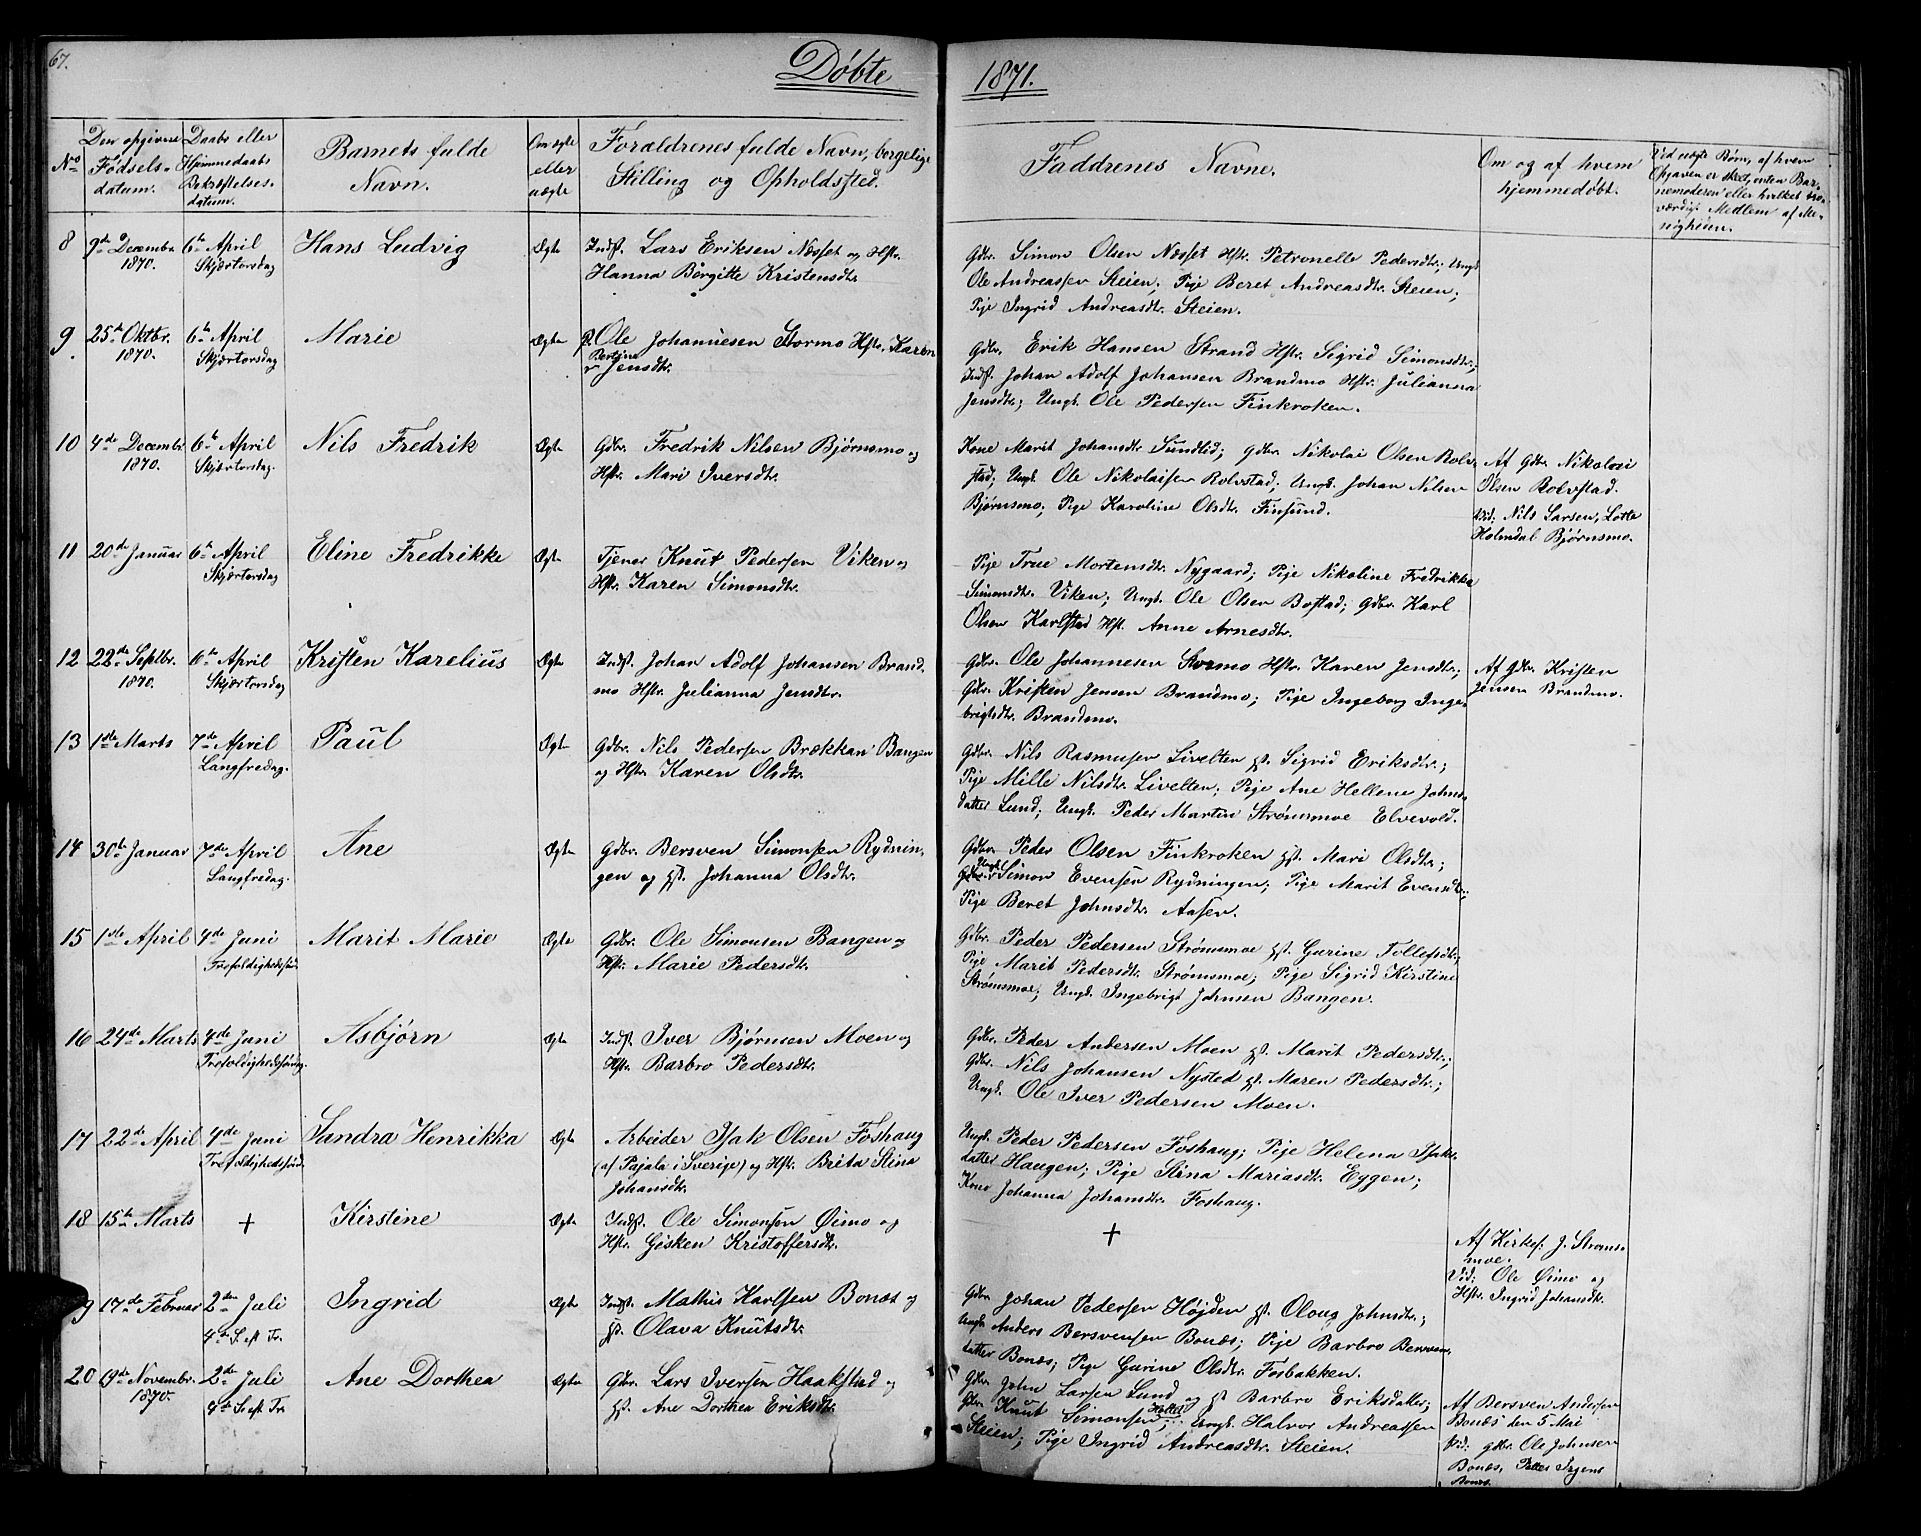 67.
Døbte
1871.
No
Den opgivne
Fødsels-
datum.
Daabs eller
Hjemmedaabs
Bekræftelses-
datum.
Barnets fulde
Navn.
Om ægte
eller
uægte
Forældrenes fulde Navn, borgelige
Stilling og Opholdssted.
Faddrenes Navne.
Om og af hvem
hjemmedøbt.
Ved uægte Børn, af hvem
Opgaven er skeet, enten Bar-
nemoderen eller hvilket tro-
værdigt Medlem af Me-
nigheden.
8
9de Decembr
1870.
6te April
Skjærtorsdag
Hans Ludvig
Ægte
Indst. Lars Eriksen Næsset og Hstr.
Hanna Børgitte Kristensdtr.
Gdbr. Simon Olsen Næsset Hstr. Petronelle Pedersdtr.; Ungk.
Ole Andreassen Steien; Pige Beret Andreasdtr. Steien;
Pige Ingrid Andreasdtr. Steien.
9
25de Oktbr.
1870.
6te April
Skjærtorsdag
Marie
Ægte
Ole Johannesen Stormo Hstr. Karen
Bertina
Jensdtr.
Gdbr. Erik Hansen Strand Hstr. Sigrid Simonsdtr.;
Indst. Johan Adolf Johansen Brandmo Hstr. Julianna
Jensdtr; Ungk. Ole Pedersen Finkroken.
10
4de Decembr
1870.
6te April
Skjærtorsdag.
Nils Fredrik
Ægte
Gdbr. Fredrik Nilsen Bjørnsmo og
Hstr. Mari Iversdtr.
Kone Marit Johansdtr. Sundlid; Gdbr. Nikolai Olsen Rolv-
stad; Ungk. Ole Nikolaisen Rolvstad; Ungk. Johan Nilsen
Bjørnsmo; Pige Karoline Olsdtr. Finsund.
Af Gdbr. Nikolai
Olsen Rolvstad.
Vid: Nils Larsen, Lotte
Holmdal Bjørnsmo.
11
20de Januar
6te April
Skjærtorsdag
Eline Fredrikke
Ægte
Tjener Knut Pedersen Viken og
Hstr. Karen Simonsdtr.
Pige True Mortensdtr. Nygaard; Pige Nikoline Fredrikka
Simonsdtr. Viken; Ungk. Ole Olsen Bostad; Gdbr. Karl
Olsen Karlstad Hst. Anne Arnesdtr.
12
22de Septbr.
1870.
6te April
Skjærtorsdag
Kristen Karelius
Ægte
Indst. Johan Adolf Johansen Brand-
mo Hstr. Julianna Jensdtr.
Gdbr. Ole Johannesen Stormo Hstr. Karen Jensdtr;
Gdbr. Kristen Jensen Brandmo; Pige Ingeborg Inge-
brigtsdtr. Brandmo.
Af Gdbr. Kristen
Jensen Brandmo.
13
1ste Marts
7de April
Langfredag.
Paul
Ægte
Gdbr. Nils Pedersen Brækkan Bangen
og Hstr. Karen Olsdtr.
Gdbr. Nils Rasmusen Livelten Hst. Sigrid Eriksdtr.;
Pige Mille Nilsdtr. Livelten; Pige Ane Hellene Johns-
datter Lund; Ungk. Peder Martin Strømsmoe Elvevold.
14
30te Januar
7de April
Langfredag.
Ane
Ægte
Gdbr. Bersven Simonsen Rydnin-
gen og Hst. Johanna Olsdtr.
Gdbr. Peder Olsen Finkroken Hst. Mari Olsdtr.;
Ungk.
Simon Evensen Rydningen; Pige Marit Evensdtr.;
Pige Beret Johnsdtr. Aasen.
15
1ste April
4de Juni
Trefoldighedssønd.
Marit Marie
Ægte
Gdbr. Ole Simonsen Bangen og
Hstr. Marie Pedersdtr.
Gdbr. Peder Pedersen Strømsmoe Hst. Gurine Tollefsdtr.;
Pige Marit Pedersdtr. Strømsmoe; Pige Sigrid Kirstine
Strømsmoe; Ungk. Ingebrigt Johnsen Bangen.
16
24de Marts
4de Juni
Trefoldighedssøndag.
Asbjørn
Ægte
Indst. Iver Bjørnsen Moen og
Hstr. Barbro Pedersdtr.
Gdbr. Peder Andersen Moen Hst. Marit Pedersdtr.;
Gdbr. Nils Johansen Nysted Hst. Maren Pedersdtr.;
Ungk. Ole Iver Pedersen Moen.
17
22de April
4de Juni
Trefoldighedssønd.
Sandra Henrikka
Ægte
Arbeider Isak Olsen Foshaug
(af Pajala i Sverige) og Hstr. Brita Stina
Johansdtr.
Ungk. Peder Pedersen Foshaug; Pige Helena Isaks-
datter Haugen; Pige Stina Mariasdtr. Eggen;
Kone Johanna Johansdtr. Foshaug.
18
15de Marts
+
Kirstine
Ægte
Indst. Ole Simonsen Øimo og
Hstr. Gjøken Kristoffersdtr.
+
Af Kirkes: J. Strøms-
moe.
Vid: Ole Øimo og
Hstr. Ingrid Johansdtr.
9
17de Februar
2den Juli
4de S. eft Tr.
Ingrid
Ægte
Indst. Mathis Karlsen Bonæs og
Hst. Olava Knutsdtr.
Gdbr. Johan Pedersen Højden Hst. Oloug Johnsdtr.;
Ungk. Anders Bersvensen Bonæs; Pige Barbro Bersven-
datter Bonæs; Pige Gurine Olsdtr. Fosbakken.
20
19de Novembr.
1870.
2de Juli
4de S. eft Tr
Ane Dorthea
Ægte
Gdbr. Lars Iversen Haakstad og
Hst. Ane Dorthea Eriksdtr.
Gdbr. John Larsen Lund og Hst Barbro Eriksdatter;
Knut Simonsen; Ungk. Halvor Andreassen
Steien; Pige Ingrid Andreasdtr. Steien.
Af Bersven Andersen
Bonæs den 5 Mai
Vid: gdbr. Ole Johnsen
Bonæs, Petter
Bonæs.